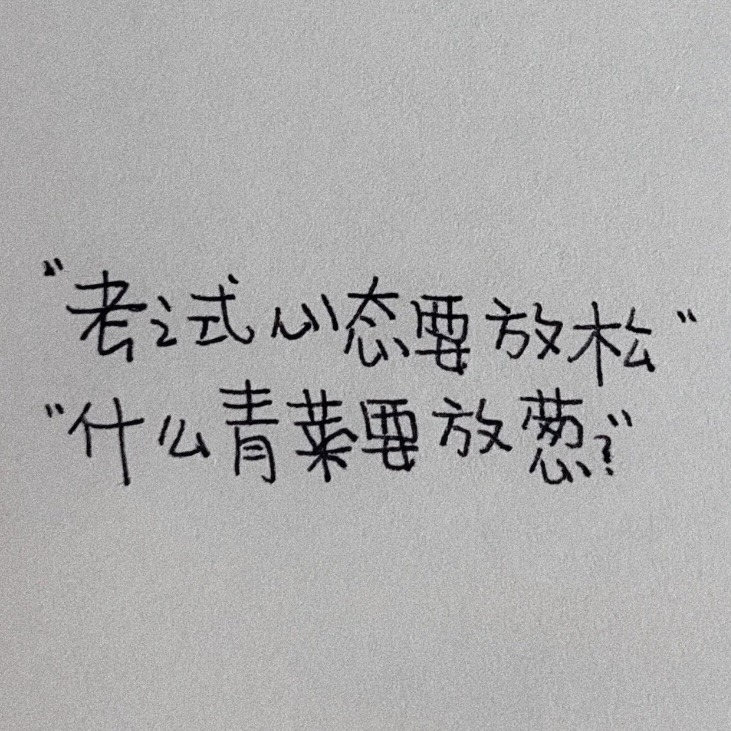 “考试心态要放松”
“什么青菜要放葱？”